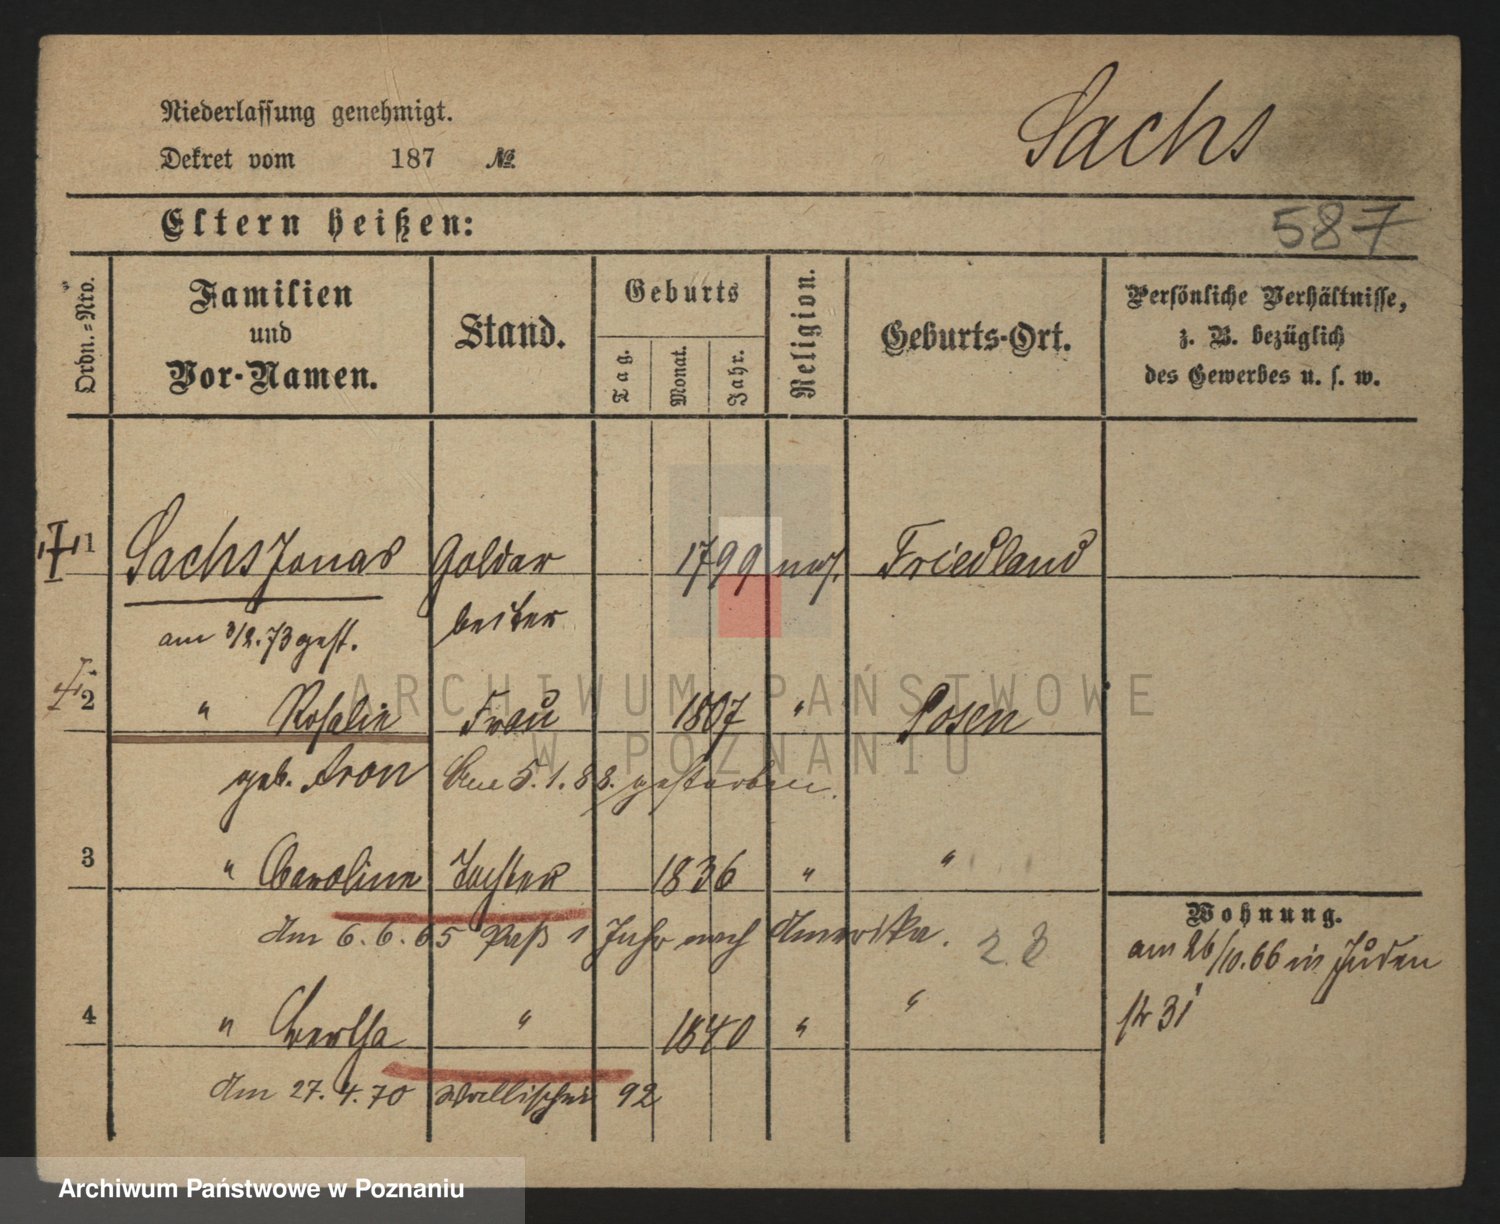 Niederlassung genehmigt.
Sachs
Dekret vom 187 №
Eltern heißen:
587
Ordn.-Nro.
Familien und Vor-Namen.
Stand.
Geburts
Tag.
Monat.
Jahr.
Religion.
Geburts-Ort.
Persönliche Verhältnisse,
z. B. bezüglich
des Gewerbes u. s. w.
1 Sachs Jonas Goldar 1799 mos. Friedland
am 3/2.73 gest. beiter
2 " Rosalie Frau 1807 " Posen
geb. Aron Am 5.1.88. gestorben.
3 " Caroline Tochter 1836 " "
Am 6.6.65 Paß 1 Jahr nach Amerika.
Wohnung.
am 26/10.66 in Juden
str 31
4 " Bertha " 1840 " "
Am 27.4.70 Wallischei 92
ARCHIWUM PAŃSTWOWE
W POZNANIU
Archiwum Państwowe w Poznaniu